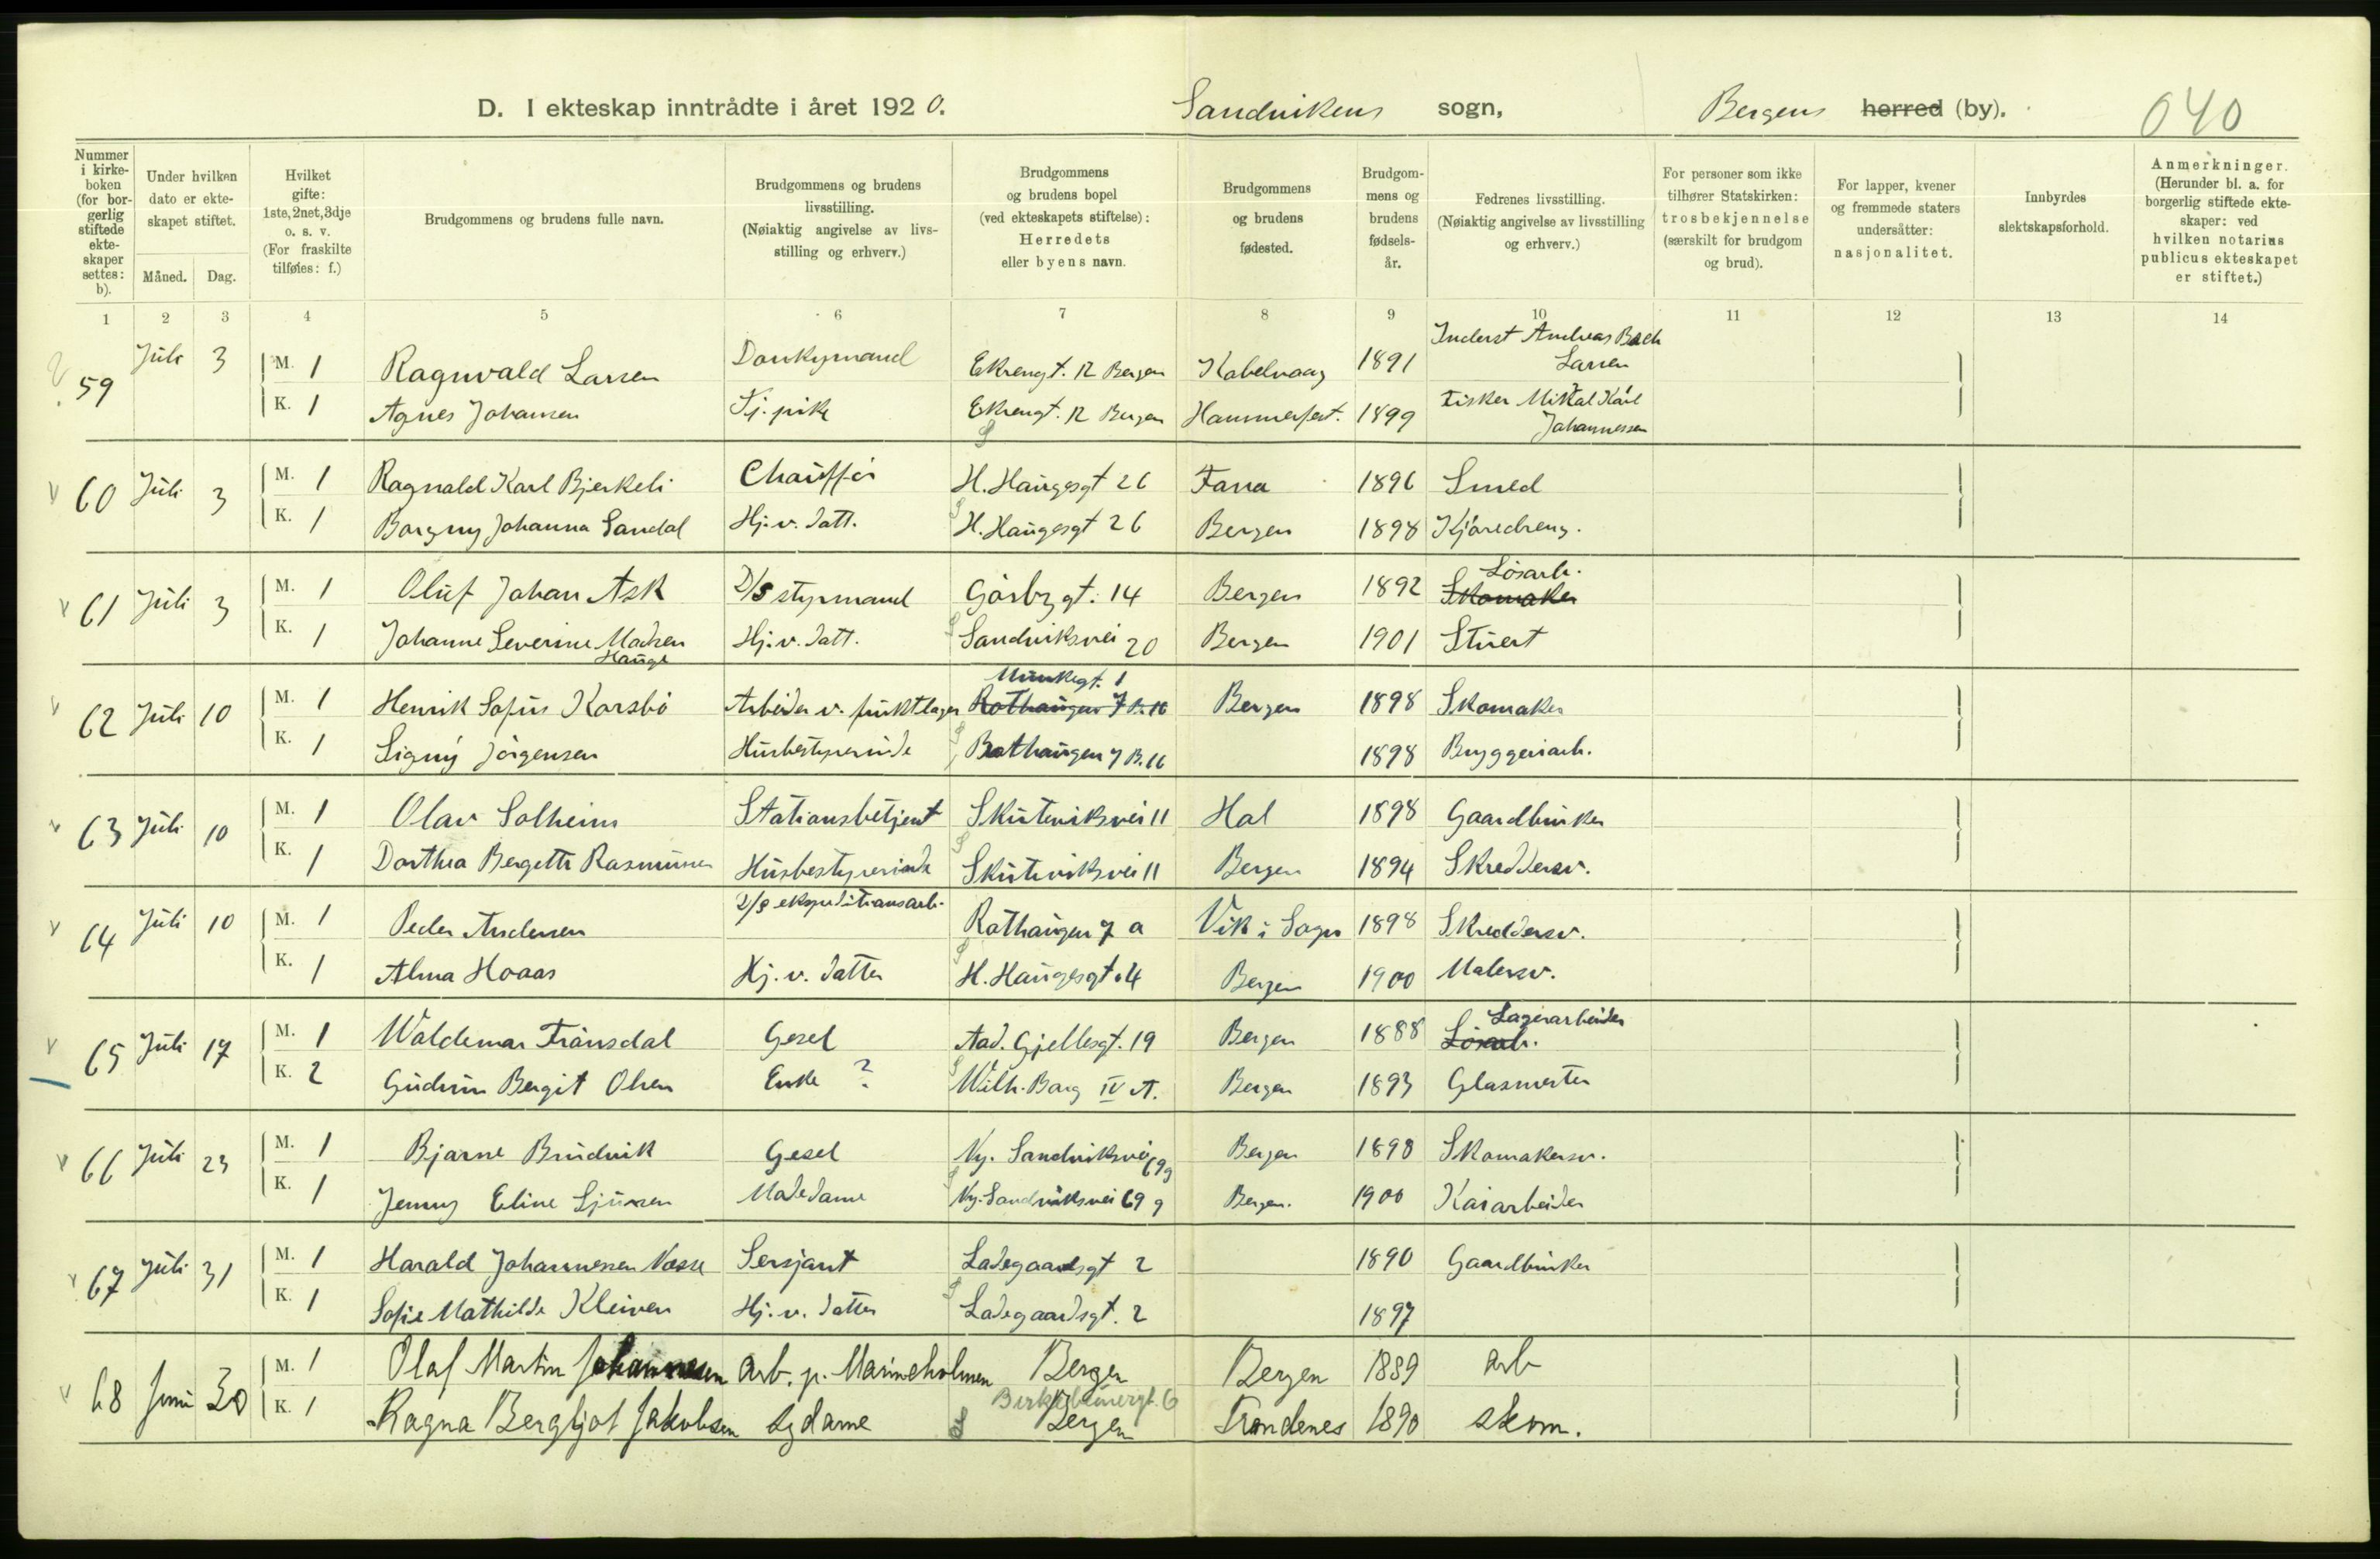 D. I ekteskap inntrådte i året 1920. Sandvikens sogn, Bergens herred (by). 040
Nummer i kirkeboken (for borgerlig stiftede ekteskaper settes: b).
Under hvilken dato er ekteskapet stiftet.
Måned. Dag.
Hvilket gifte: 1ste, 2net, 3dje o. s. v. (For fraskilte tilføies: f.)
Brudgommens og brudens fulle navn.
Brudgommens og brudens livsstilling. (Nøiaktig angivelse av livsstilling og erhverv.)
Brudgommens og brudens bopel (ved ekteskapets stiftelse): Herredets eller byens navn.
Brudgommens og brudens fødested.
Brudgommens og brudens fødselsår.
Fedrenes livsstilling. (Nøiaktig angivelse av livsstilling og erhverv.)
For personer som ikke tilhører Statskirken: trosbekjennelse (særskilt for brudgom og brud).
For lapper, kvener og fremmede staters undersåtter: nasjonalitet.
Innbyrdes slektskapsforhold.
Anmerkninger. (Herunder bl. a. for borgerlig stiftede ekteskaper: ved hvilken notarius publicus ekteskapet er stiftet.)
1 2 3 4 5 6 7 8 9 10 11 12 13 14
59 Juli 3 M. 1 Ragnvald Larsen Donkymand Ekrengt. 12 Bergen Kabelvaag 1891 Inderst Andreas Bach Larsen
K. 1 Agnes Johansen Tj. pike Ekrengt. 12 Bergen Hammerfest. 1899 Fisker Mikal Karl Johannessen
60 Juli 3 M. 1 Ragnald Karl Bjerkeli Chauffør H. Haugesgt 26 Fana 1896 Smed
K. 1 Borgny Johanna Sandal Hj. v. datt. H. Haugesgt 26 Bergen 1898 Kjøredreng.
61 Juli 3 M. 1 Oluf Johan Ask D/S styrmand Görbzgt. 14 Bergen 1892 Skomaker Løsarb.
K. 1 Johanne Severine Madsen Hauge Hj. v. datt. Sandviksvei 20 Bergen 1901 Stuert
62 Juli 10 M. 1 Henrik Sofus Korsbø Arbeider v. fruktlager Rothaugen 7 B. 16 Munkegt. 1 Bergen 1898 Skomaker
K. 1 Signy Jørgensen Husbestyrerinde Rothaugen 7 B. 16 1898 Bryggeriarb.
63 Juli 10 M. 1 Olav Solheim Stationsbetjent Skuteviksvei 11 Hol 1898 Gaardbruker
K. 1 Dorthea Bergette Rasmussen Husbestyrerinde Skuteviksvei 11 Bergen 1894 Skreddersv.
64 Juli 10 M. 1 Peder Andersen D/S ekspeditionsarb. Rothaugen 7 a Vik i Sogn 1898 Skreddersv.
K. 1 Alma Hoaas Hj. v. datter H. Haugesgt. 4 Bergen 1900 Malersv.
65 Juli 17 M. 1 Waldemar Frånsdal Gesel Aad. Gjellesgt. 19 Bergen 1888 Løsarb. Lagerarbeider
K. 2 Gudrun Bergit Olsen Enke ? Wilh. Borg IV A. Bergen 1893 Glasmester
66 Juli 23 M. 1 Bjarne Brudvik Gesel Ny. Sandviksvei 69g Bergen 1898 Skomakersv.
K. 1 Jenny Eline Sjursen Madedame Ny. Sandviksvei 69 g Bergen. 1900 Kaiarbeider
67 Juli 31 M. 1 Harald Johannessen Vasse Sersjant Ladegaardsgt 2 1890 Gaardbruker
K. 1 Sofie Mathilde Kleiven Hj. v. datter Ladegaardsgt. 2 1897
68 Juni 30 M. 1 Olaf Martin Johannessen arb. p. Marineholmen Bergen Bergen 1889 arb
K. 1 Ragna Bergljot Jakobsen sydame Birkebeinergt. 6 Bergen Trondenes 1890 skom.